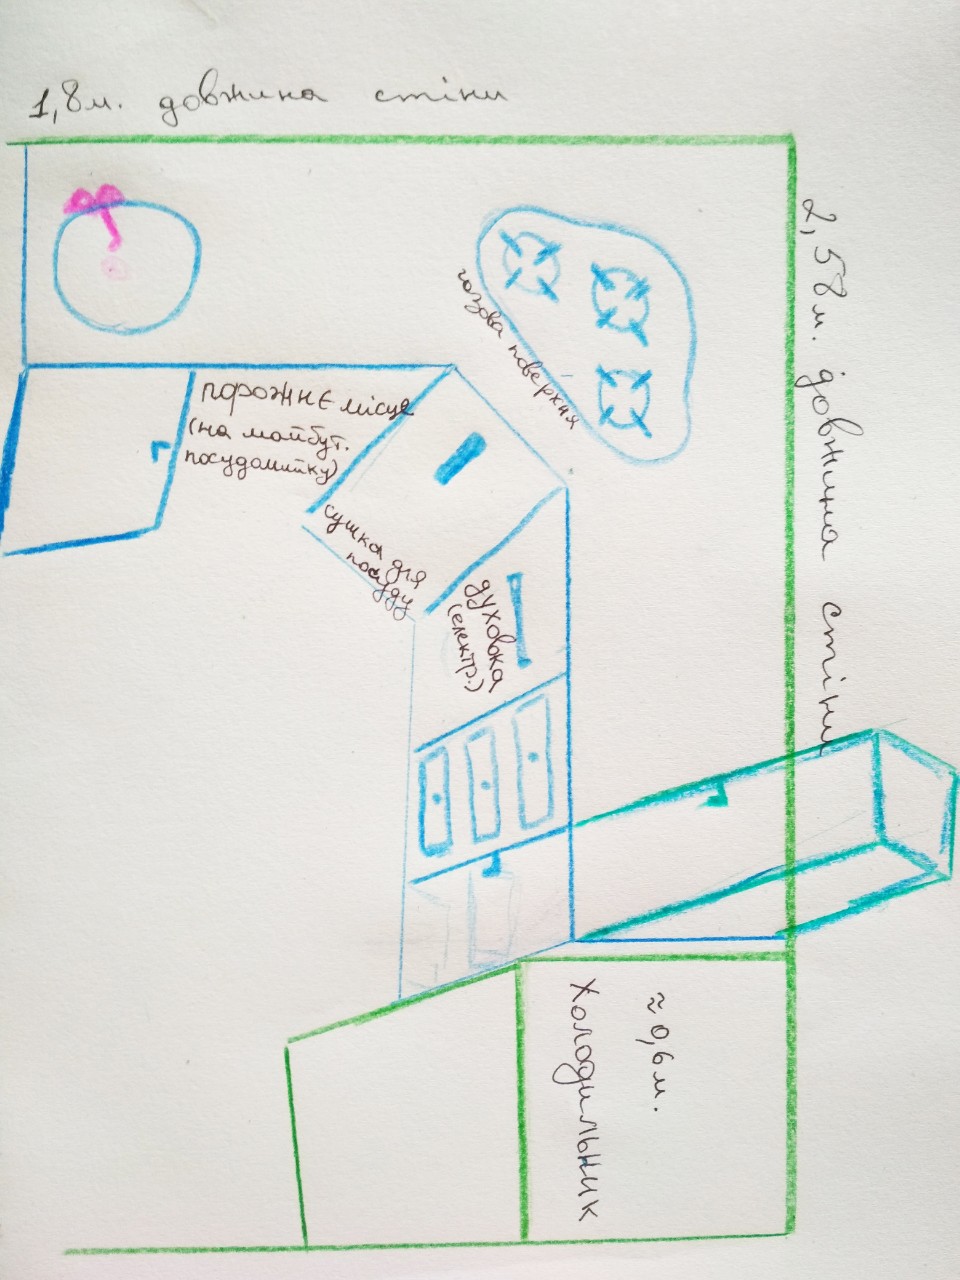 1,8м. довжина стіни
2,58м. довжина стіни
газова поверхня
порожнє місце
(на майбут.
посудомийку)
сушка для
посуду
духовка
(електр.)
≈ 0,6м.
Холодильник